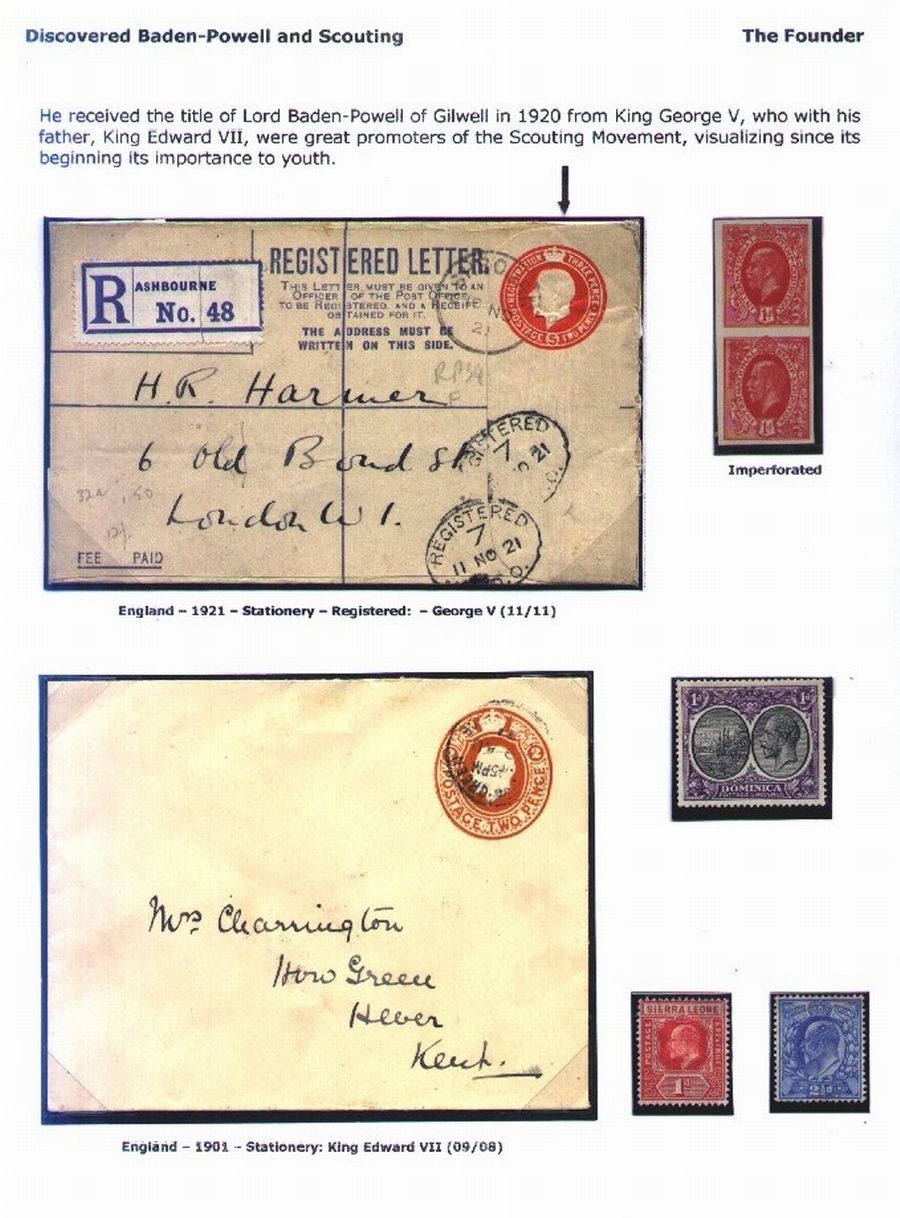 Discovered Baden-Powell and Scouting
The Founder
He received the title of Lord Baden-Powell of Gilwell in 1920 from King George V, who with his
father, King Edward VII, were great promoters of the Scouting Movement, visualizing since its
beginning its importance to youth.
REGISTERED LETTER.
THIS LETTER MUST BE GIVEN TO AN
OFFICER OF THE POST OFFICE
TO BE REGISTERED, AND A RECEIPT
OBTAINED FOR IT.
THE ADDRESS MUST BE
WRITTEN ON THIS SIDE.
R ASHBOURNE
No. 48
REGISTRATION THREE PENCE
POSTAGE TWO PENCE
RP34
F
H.R. Harmer
6 Old Bond St
London W1.
32a
150
12/-
FEE PAID
REGISTERED
7
NO 21
REGISTERED
7
11 NO 21
1d
1d
Imperforated
England – 1921 – Stationery – Registered: – George V (11/11)
POSTAGE TWO PENCE
45PM
Mrs Charrington
How Green
Hever
Kent.
1d 1d
DOMINICA
SIERRA LEONE
POSTAGE
1d
England – 1901 – Stationery: King Edward VII (09/08)